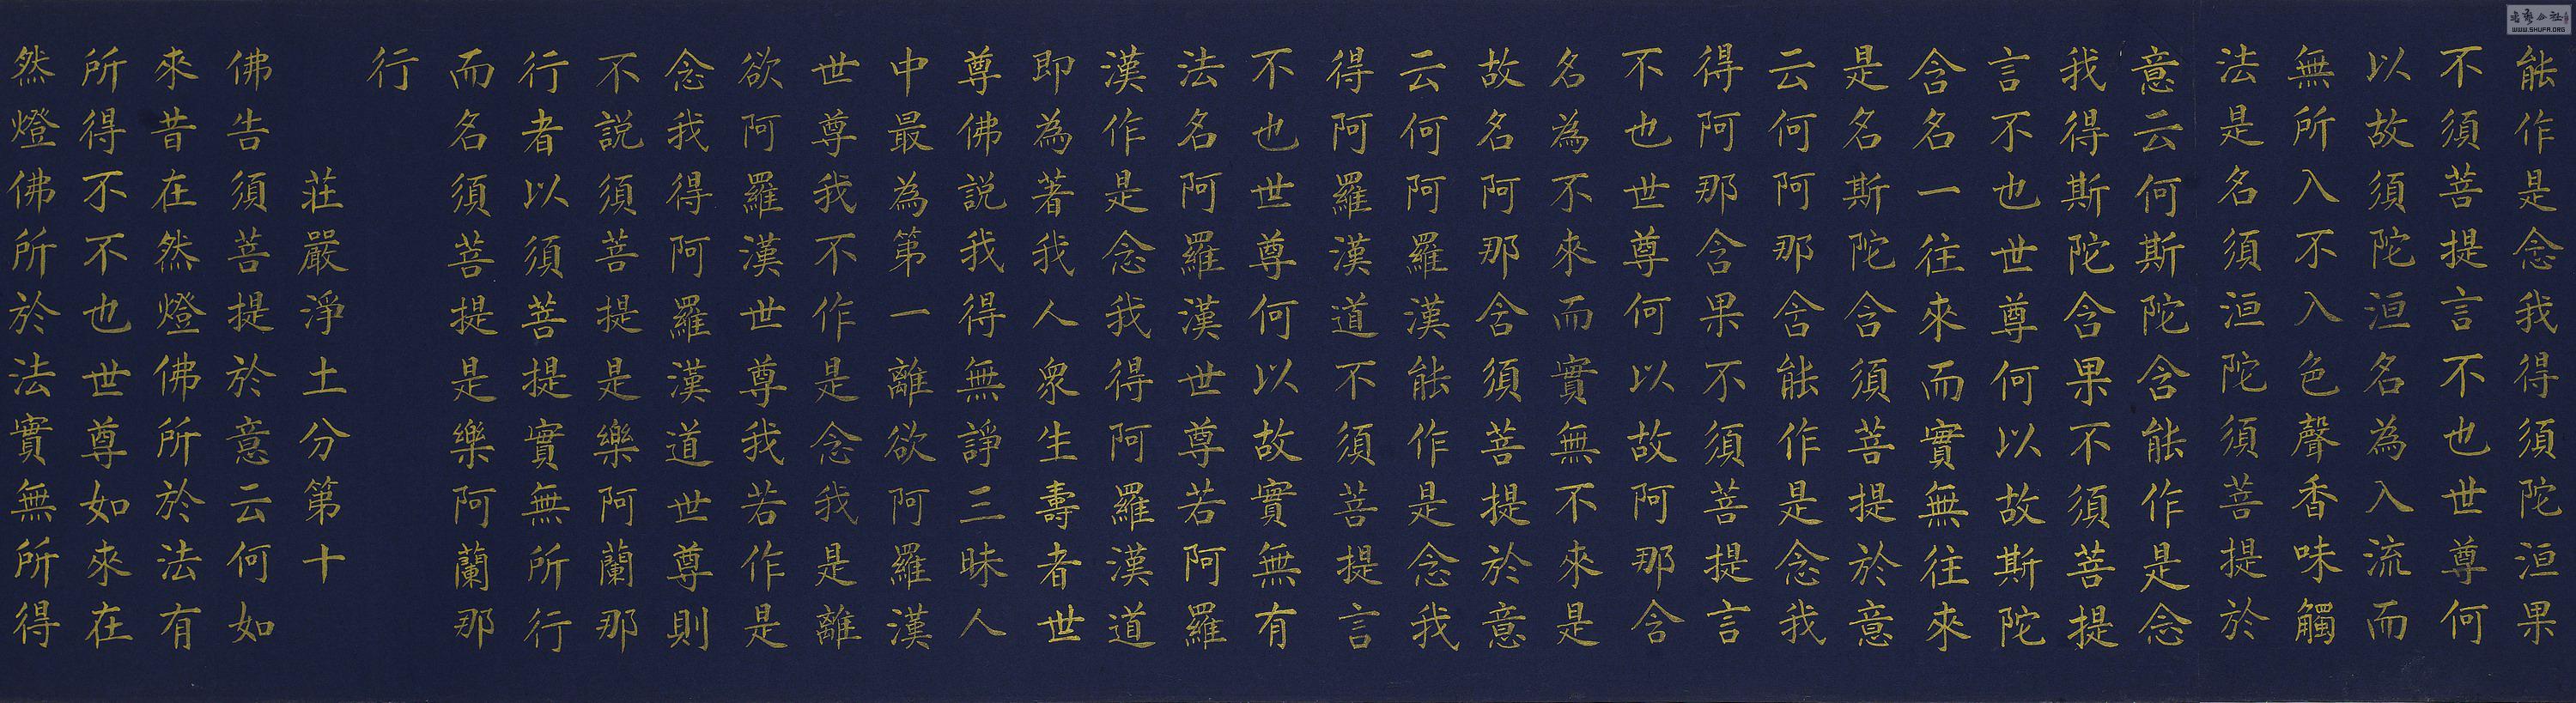 能作是念我得須陀洹果
不須菩提言不也世尊何
以故須陀洹名為入流而
無所入不入色聲香味觸
法是名須洹陀須菩提於
意云何斯陀含能作是念
我得斯陀含果不須菩提
言不也世尊何以故斯陀
含名一往來而實無往來
是名斯陀含須菩提於意
云何阿那含能作是念我
得阿那含果不須菩提言
不也世尊何以故阿那含
名為不來而實無不來是
故名阿那含須菩提於意
云何阿羅漢能作是念我
得阿羅漢道不須菩提言
不也世尊何以故實無有
法名阿羅漢世尊若阿羅
漢作是念我得阿羅漢道
即為著我人眾生壽者世
尊佛說我得無諍三昧人
中最為第一離欲阿羅漢
世尊我不作是念我是離
欲阿羅漢世尊我若作是
念我得阿羅漢道世尊則
不說須菩提是樂阿蘭那
行者以須菩提實無所行
而名須菩提是樂阿蘭那
行
莊嚴淨土分第十
佛告須菩提於意云何如
來昔在然燈佛所於法有
所得不不也世尊如來在
然燈佛所於法實無所得
WWW.SHUFA.ORG